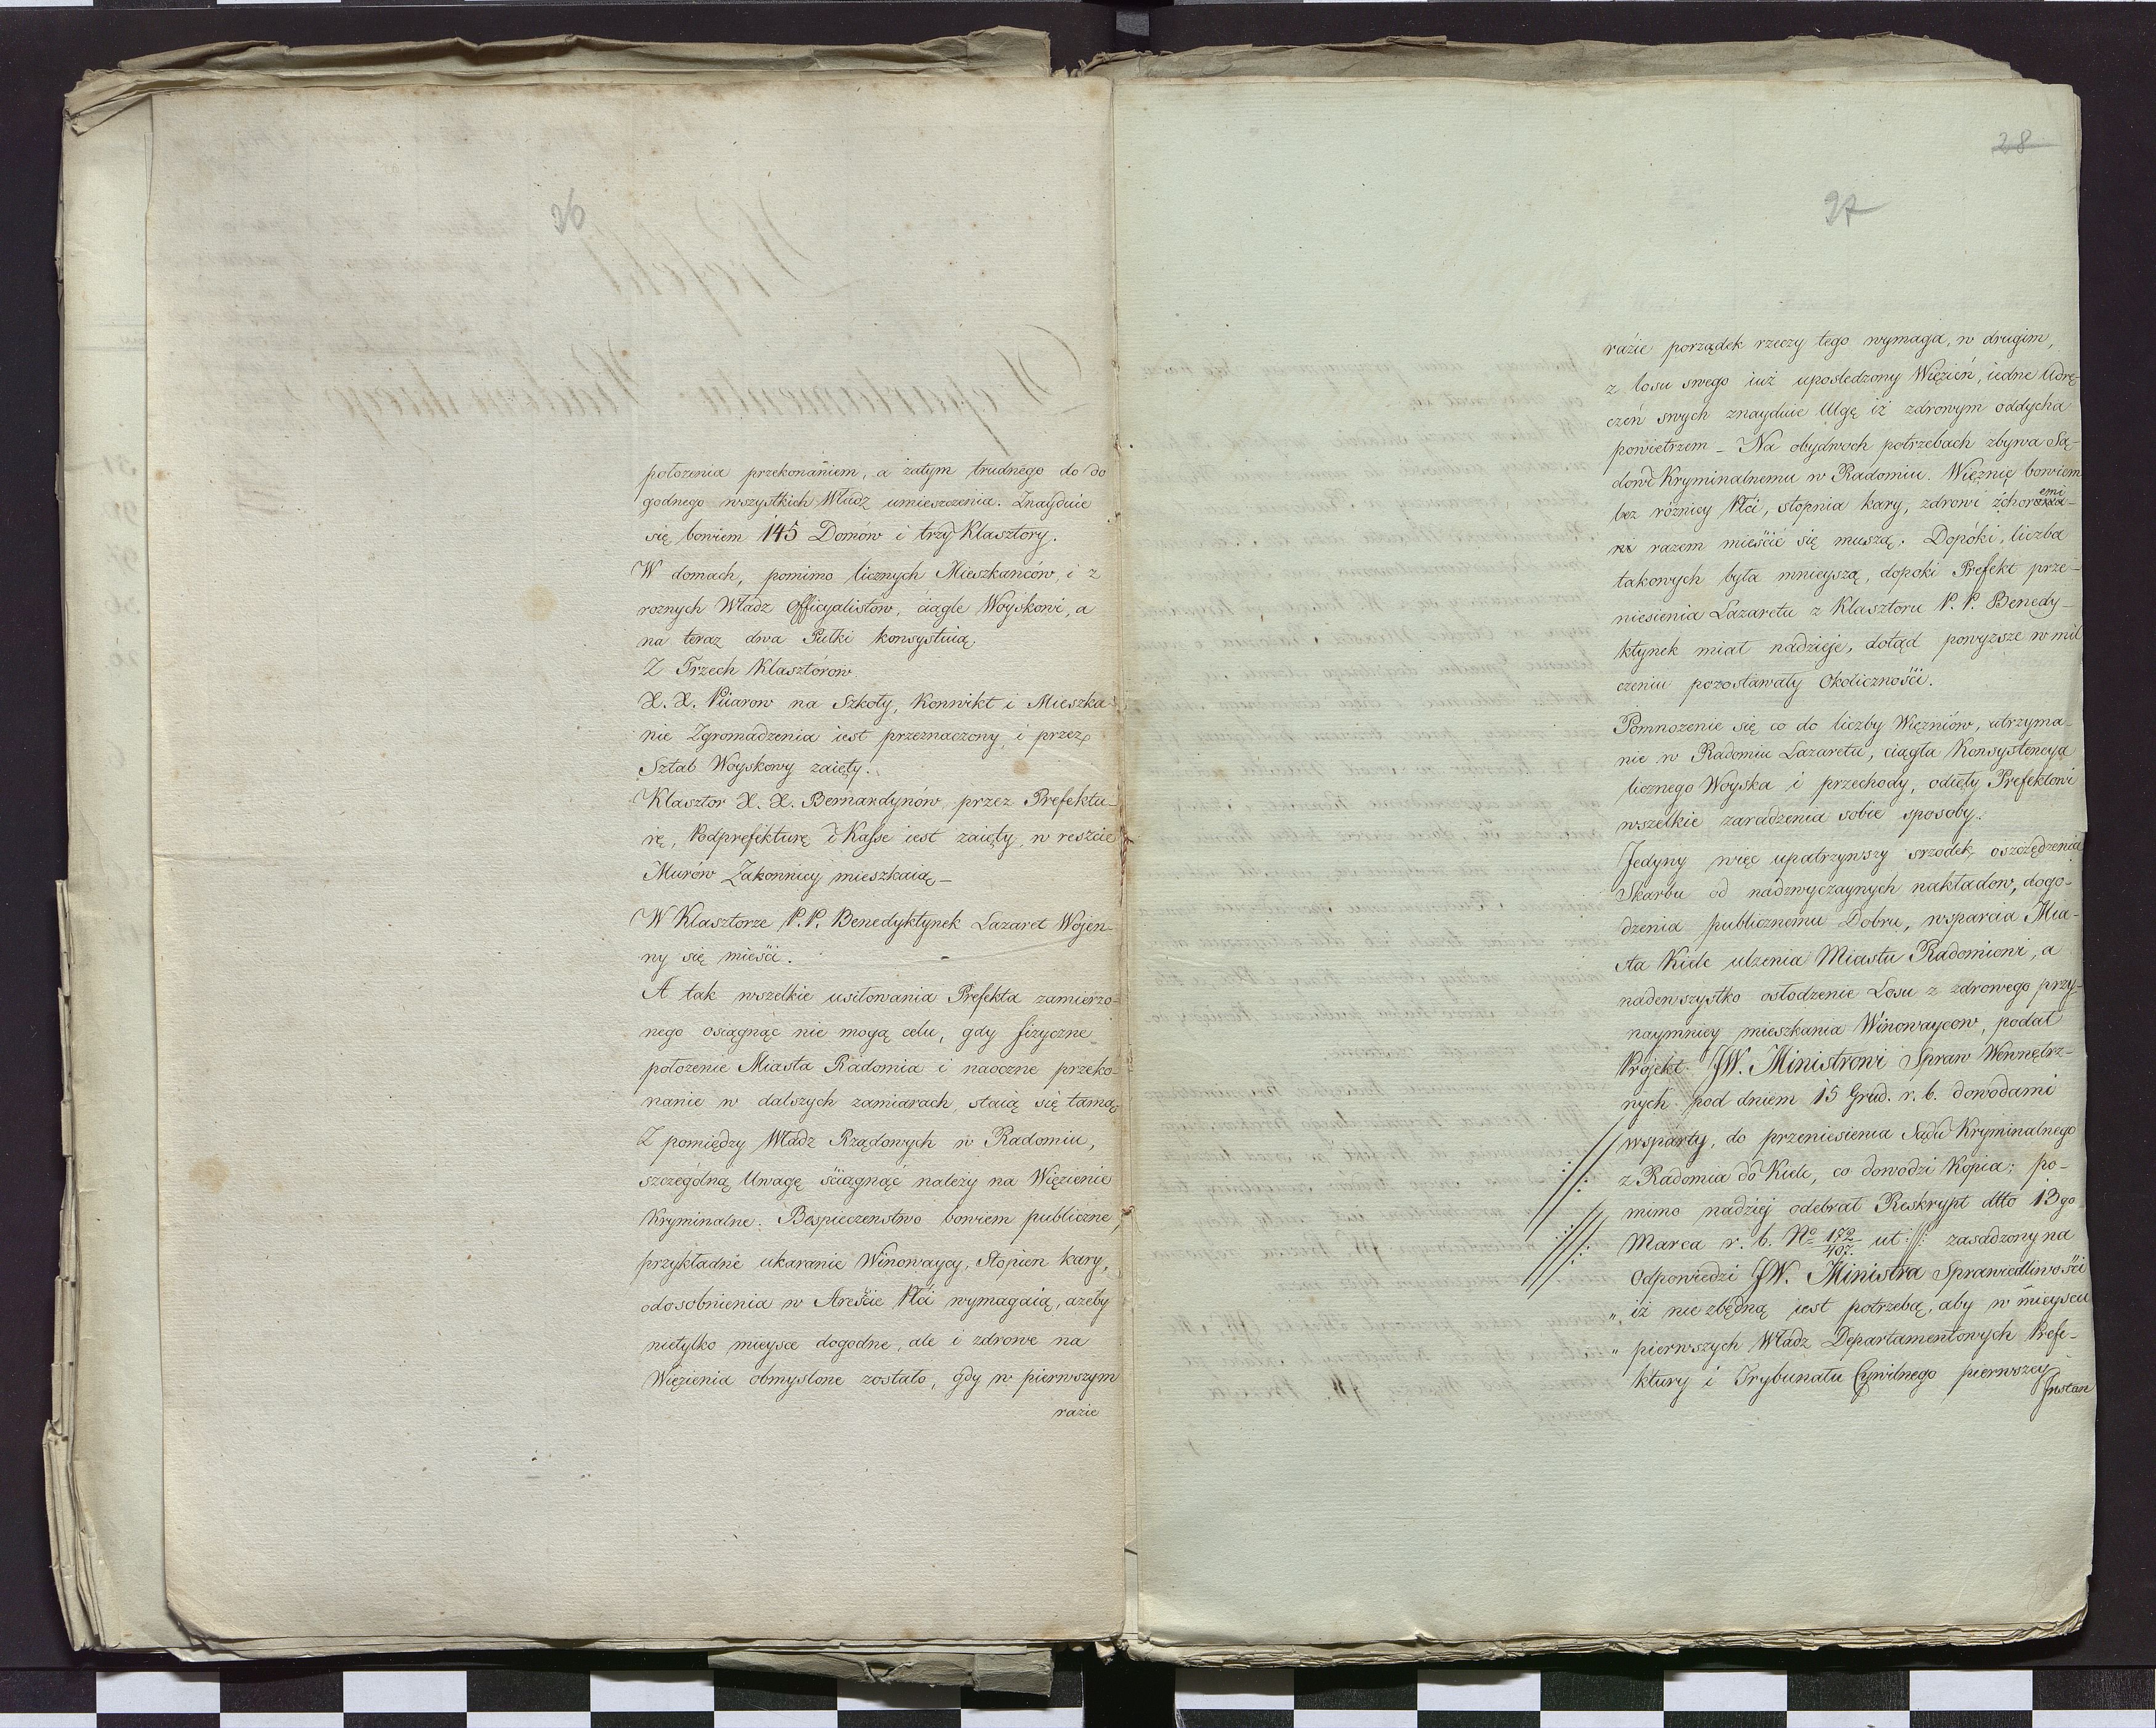 26
położenia przekonaniem, a zatym trudnego do do
godnego wszystkich Władz umieszczenia. Znayduie
się bowiem 145 Domów i trzy Klasztory.
W domach, pomimo licznych Mieszkanców, i z
roznych Władz Officyalistów, ciągle Woyskowi, a
na teraz dwa Pułki konsystuią.
Z Trzech Klasztórow.
X. X. Piiarow na Szkoły, Konwikt i Mieszka-
nie Zgromadzenia iest przeznaczony, i przez
Sztab Woyskowy zaięty.
Klasztor X. X. Bernardynów przez Prefektu-
rę, Podprefekturę i Kasse iest zaięty, w reszcie
Murów Zakonnicy mieszkaią_
W Klasztorze P. P. Benedyktynek Lazaret Wojen-
ny się mieści.
A tak wszelkie usiłowania Prefekta zamierzo-
nego osiągnąć nie mogą celu, gdy fizyczne
położenie Miasta Radomia i naoczne przeko-
nanie w dalszych zamiarach, staią się tamą.
Z pomiędzy Władz Rządowych w Radomiu,
szczególną Uwagę ściągnąć należy na Więzienie
Kryminalne. Bespieczenstwo bowiem publiczne,
przykładne ukaranie Winowaycy, Stopien kary,
odosobnienia w Areście Płci wymagaią, azeby
nietylko mieysce dogodne, ale i zdrowe na
Więzienia obmyslone zostało, gdy w pierwszym
razie
28
27
razie porządek rzeczy tego wymaga, w drugim,
z losu swego iuż uposledzony Więzień, iedne Udrę
czeń swych znayduie Ulgę iż zdrowym oddycha
powietrzem _ Na obydwoch potrzebach zbywa Są-
dowi Kryminalnemu w Radomiu. Więznie bowiem
bez różnicy Płci, stopnia kary, zdrowi z choremi
razem mieścić się muszą. Dopóki, liczba
takowych była mnieyszą, dopoki Prefekt prze-
niesienia Lazaretu z Klasztoru P. P. Benedy-
ktynek miał nadzieje, dotąd powyzsze w mil
czeniu pozostawały Okoliczności.
Pomnozenie się co do liczby Więzniów, utrzyma-
nie w Radomiu Lazaretu, ciągła Konsystencyą
licznego Woyska i przechody, odięty Prefektowi
wszelkie zaradzenia sobie sposoby.
Jedyny więc upatrzywszy srzodek, oszczędzenia
Skarbu od nadzwyczaynych nakładow, dogo-
dzenia publicznemu Dobru, wsparcia Mia-
sta Kielc ulzenia Miastu Radomiowi, a
nadewszystko osłodzenie Losu z zdrowego przy-
naymniey mieszkania Winowaycow, podał
Projekt JW. Ministrowi Spraw Wewnętrz-
nych pod dniem 15 Grud. r. b. dowodami
wsparty, do przeniesienia Sądu Kryminalnego
z Radomia do Kielc, co dowodzi Kopia; po-
mimo nadziej odebrał Reskrypt dtto 13go
Marca r. b. No 172/407. ut ://: zasadzony na
Odpowiedzi JW. Ministra Sprawiedliwości
„ iż niezbędną iest potrzebą, aby w mieyscu
„ pierwszych Władz Departamentowych Prefe-
ktury i Trybunału Cywilnego pierwszey
Instan